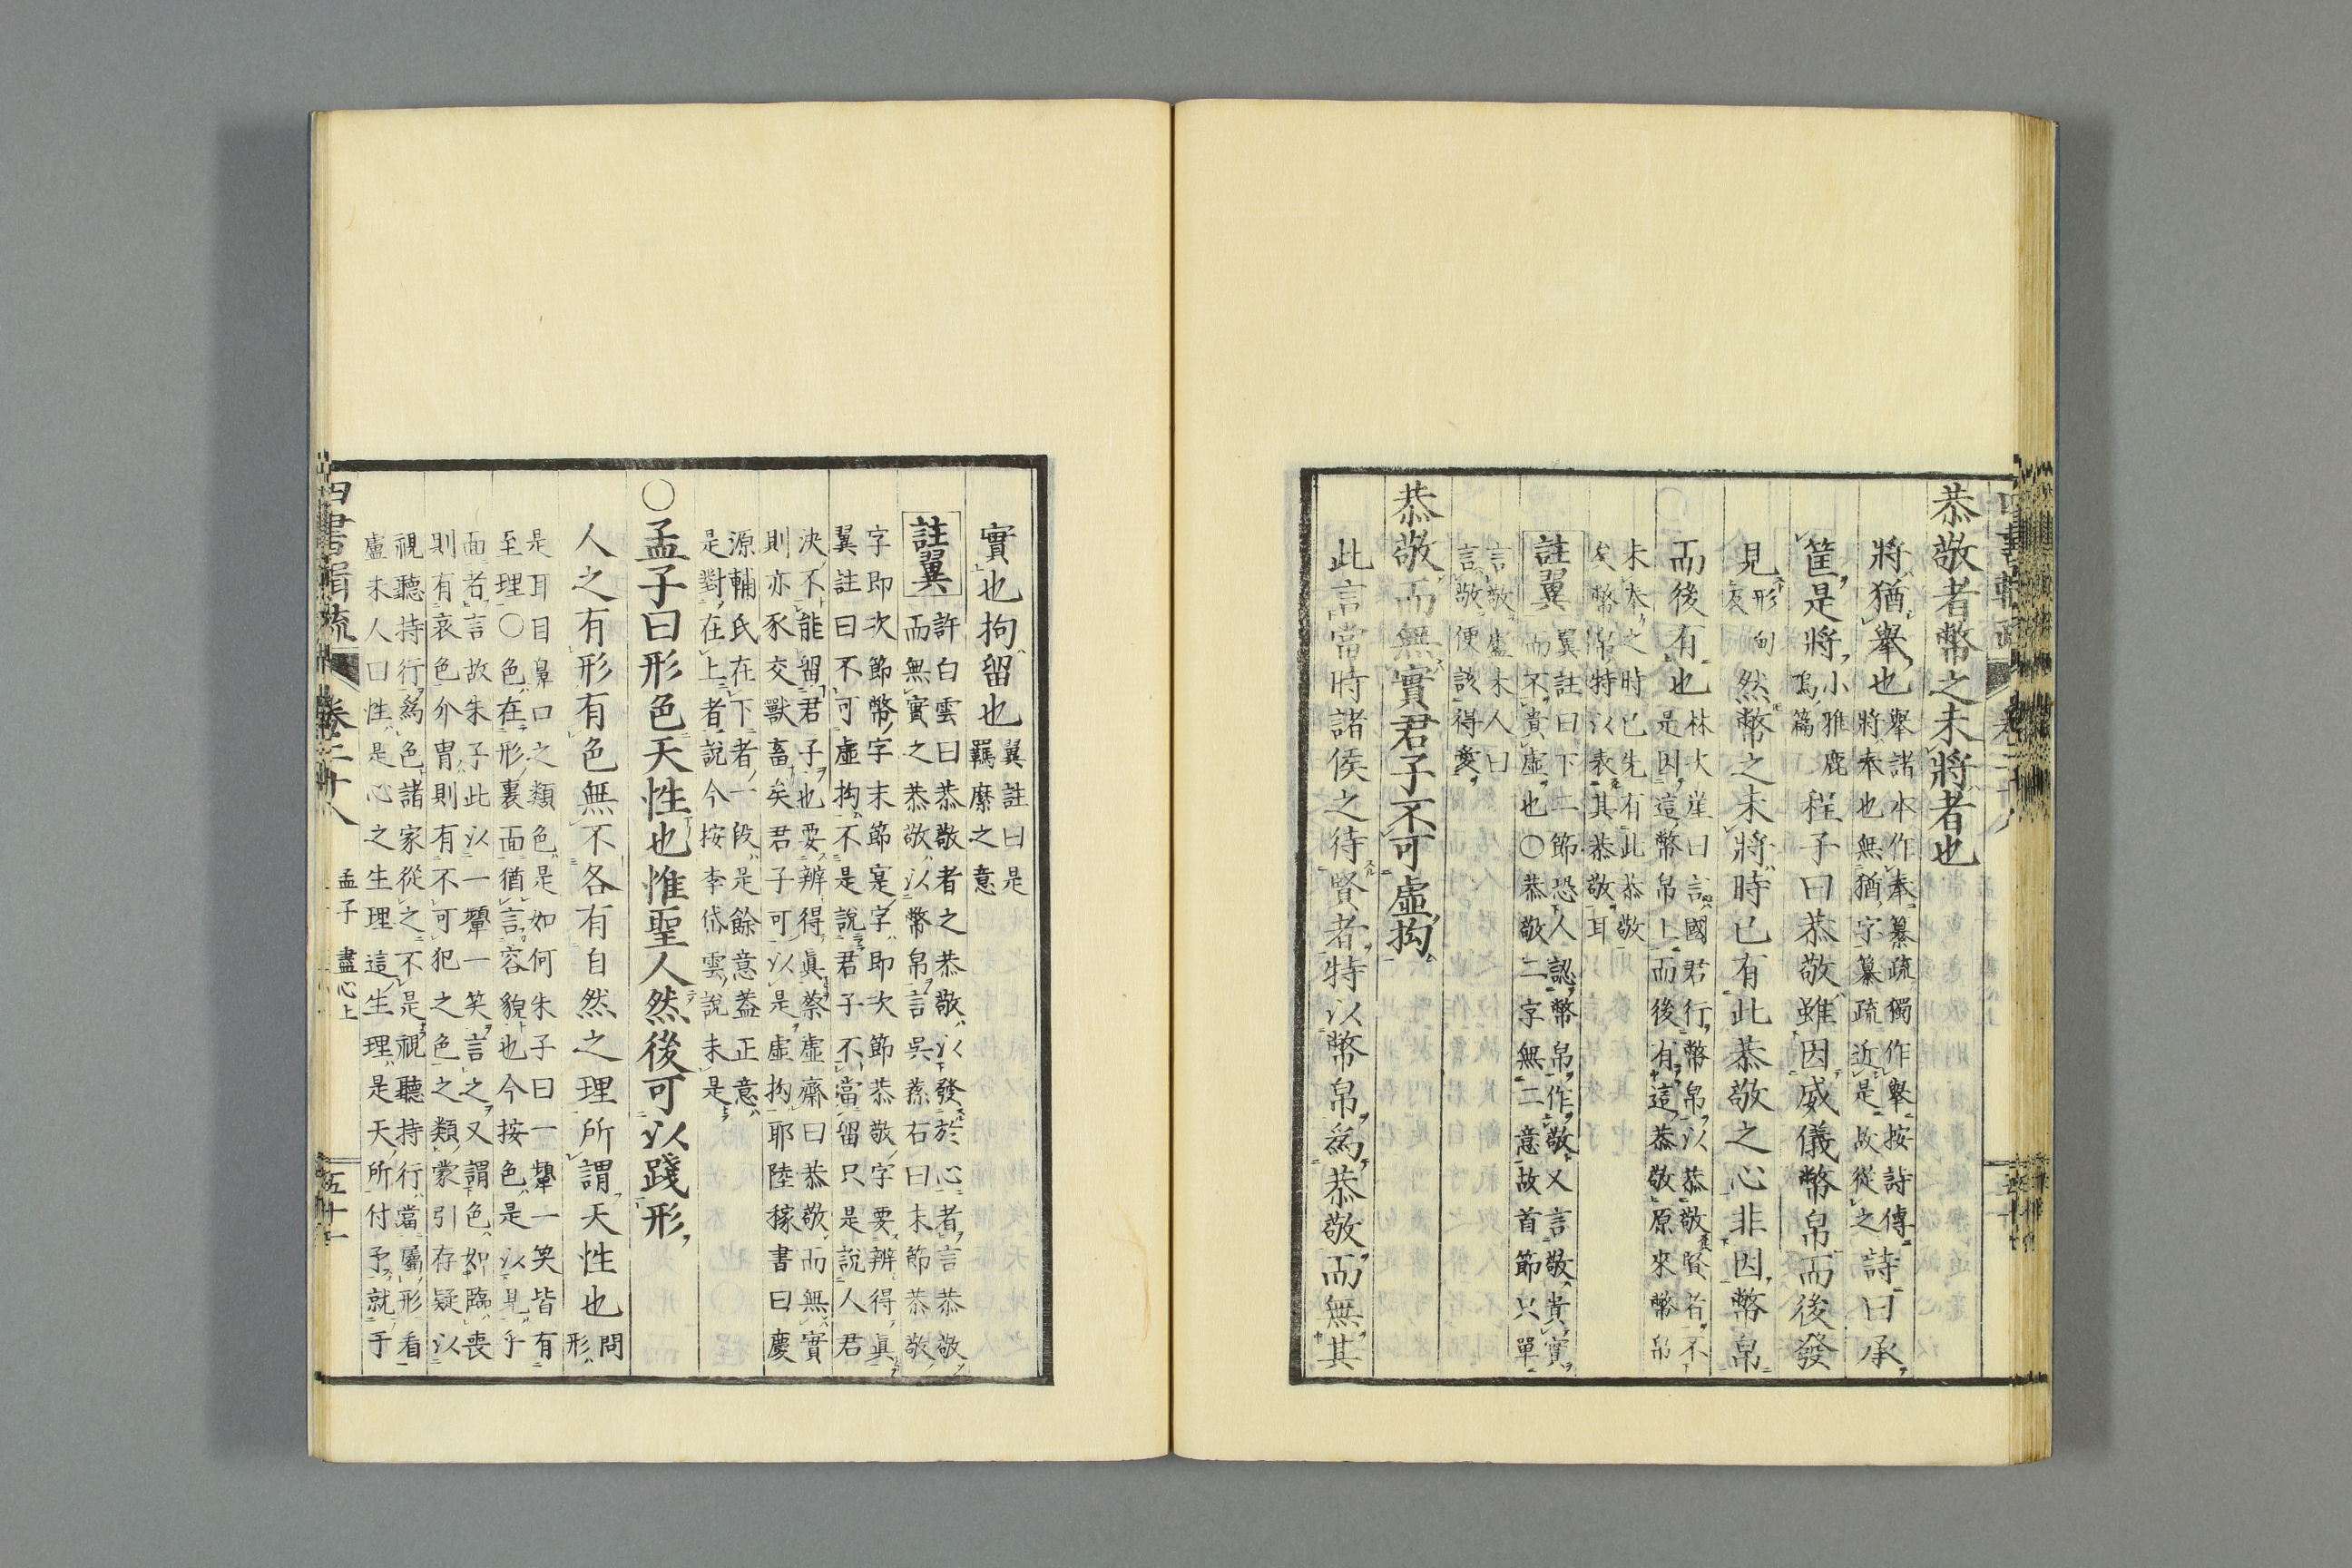 恭敬者幣之未將者也
將猶擧也擧諸本作奉纂疏獨作擧按詩傳
將奉也無猶字纂疏近是故從之詩曰承
筐是將小雅鹿
鳴篇程子曰恭敬雖因威儀幣帛而後發
見形甸
反然幣之未將時已有此恭敬之心非因幣帛
而後有也林次崖曰言國君行幣帛以恭敬賢者不
是因這幣帛上而後有這恭敬原來幣帛
未奉之時已先有此恭敬
矣幣帛特以表其恭敬耳
註翼
翼註曰下二節恐人認幣帛作敬又言敬貴實
而不貴虛也○恭敬二字無二意故首節只單
言敬盧未人曰
言敬便該得愛
恭敬而無實君子不可虛拘
此言當時諸侯之待賢者特以幣帛爲恭敬而無其
實也拘留也翼註曰是
羈縻之意
註翼
許白雲曰恭敬者之恭敬以發於心者言恭敬
而無實之恭敬以幣帛言吳蓀石曰末節恭敬
字即次節幣字末節寔字即次節恭敬字要辨得眞
翼註曰不可虛拘不是說君子不當留只是說人君
決不能留君子也要辨得眞蔡虛齋曰恭敬而無實
則亦豕交獸畜矣君子可以是虛拘耶陸稼書曰慶
源輔氏在下者一段是餘意蓋正意
是對在上者說今按李岱雲說未是
○孟子曰形色天性也惟聖人然後可以踐形
人之有形有色無不各有自然之理所謂天性也問
形
是耳目鼻口之類色是如何朱子曰一顰一笑皆有
至理○色在形裏面猶言容貌也今按色是以見乎
面者言故朱子此以一顰一笑言之又謂色如臨喪
則有哀色介冑則有不可犯之色之類蒙引存疑以
視聽持行爲色諸家從之不是視聽持行當屬形看
盧未人曰性是心之生理這生理是天所付予就于
四書輯疏 卷二十八 孟子 盡心上 五十一